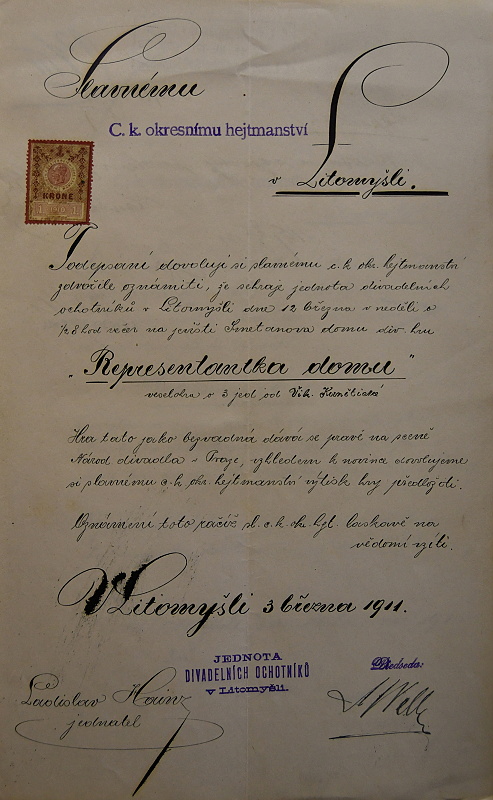 Slavnému
C. k. okresnímu hejtmanství
v Litomyšli.
KRONE
1 1
Podepsaní dovolují si slavnému c. k. okr. hejtmanství
zdvořile oznámiti, že sehraje jednota divadelních
ochotníků v Litomyšli dne 12 března v neděli o
1/2 8 hod večer na jevišti Smetanova domu div. hru
„Representantka domu"
veselohra o 3 jed od Vik.
Hra tato jako bezvadná dává se právě na scéně
Národ divadla v Praze, vzhledem k novince dovolujeme
si slavnému c. k. okr. hejtmanství výtisk hry předložiti.
Oznámení toto račiž sl. c. k. okr. hejt. laskavě na
vědomí vzíti.
V Litomyšli 3 března 1911.
JEDNOTA
DIVADELNÍCH OCHOTNÍKŮ
v Litomyšli.
Předseda:
Ladislav
jednatel